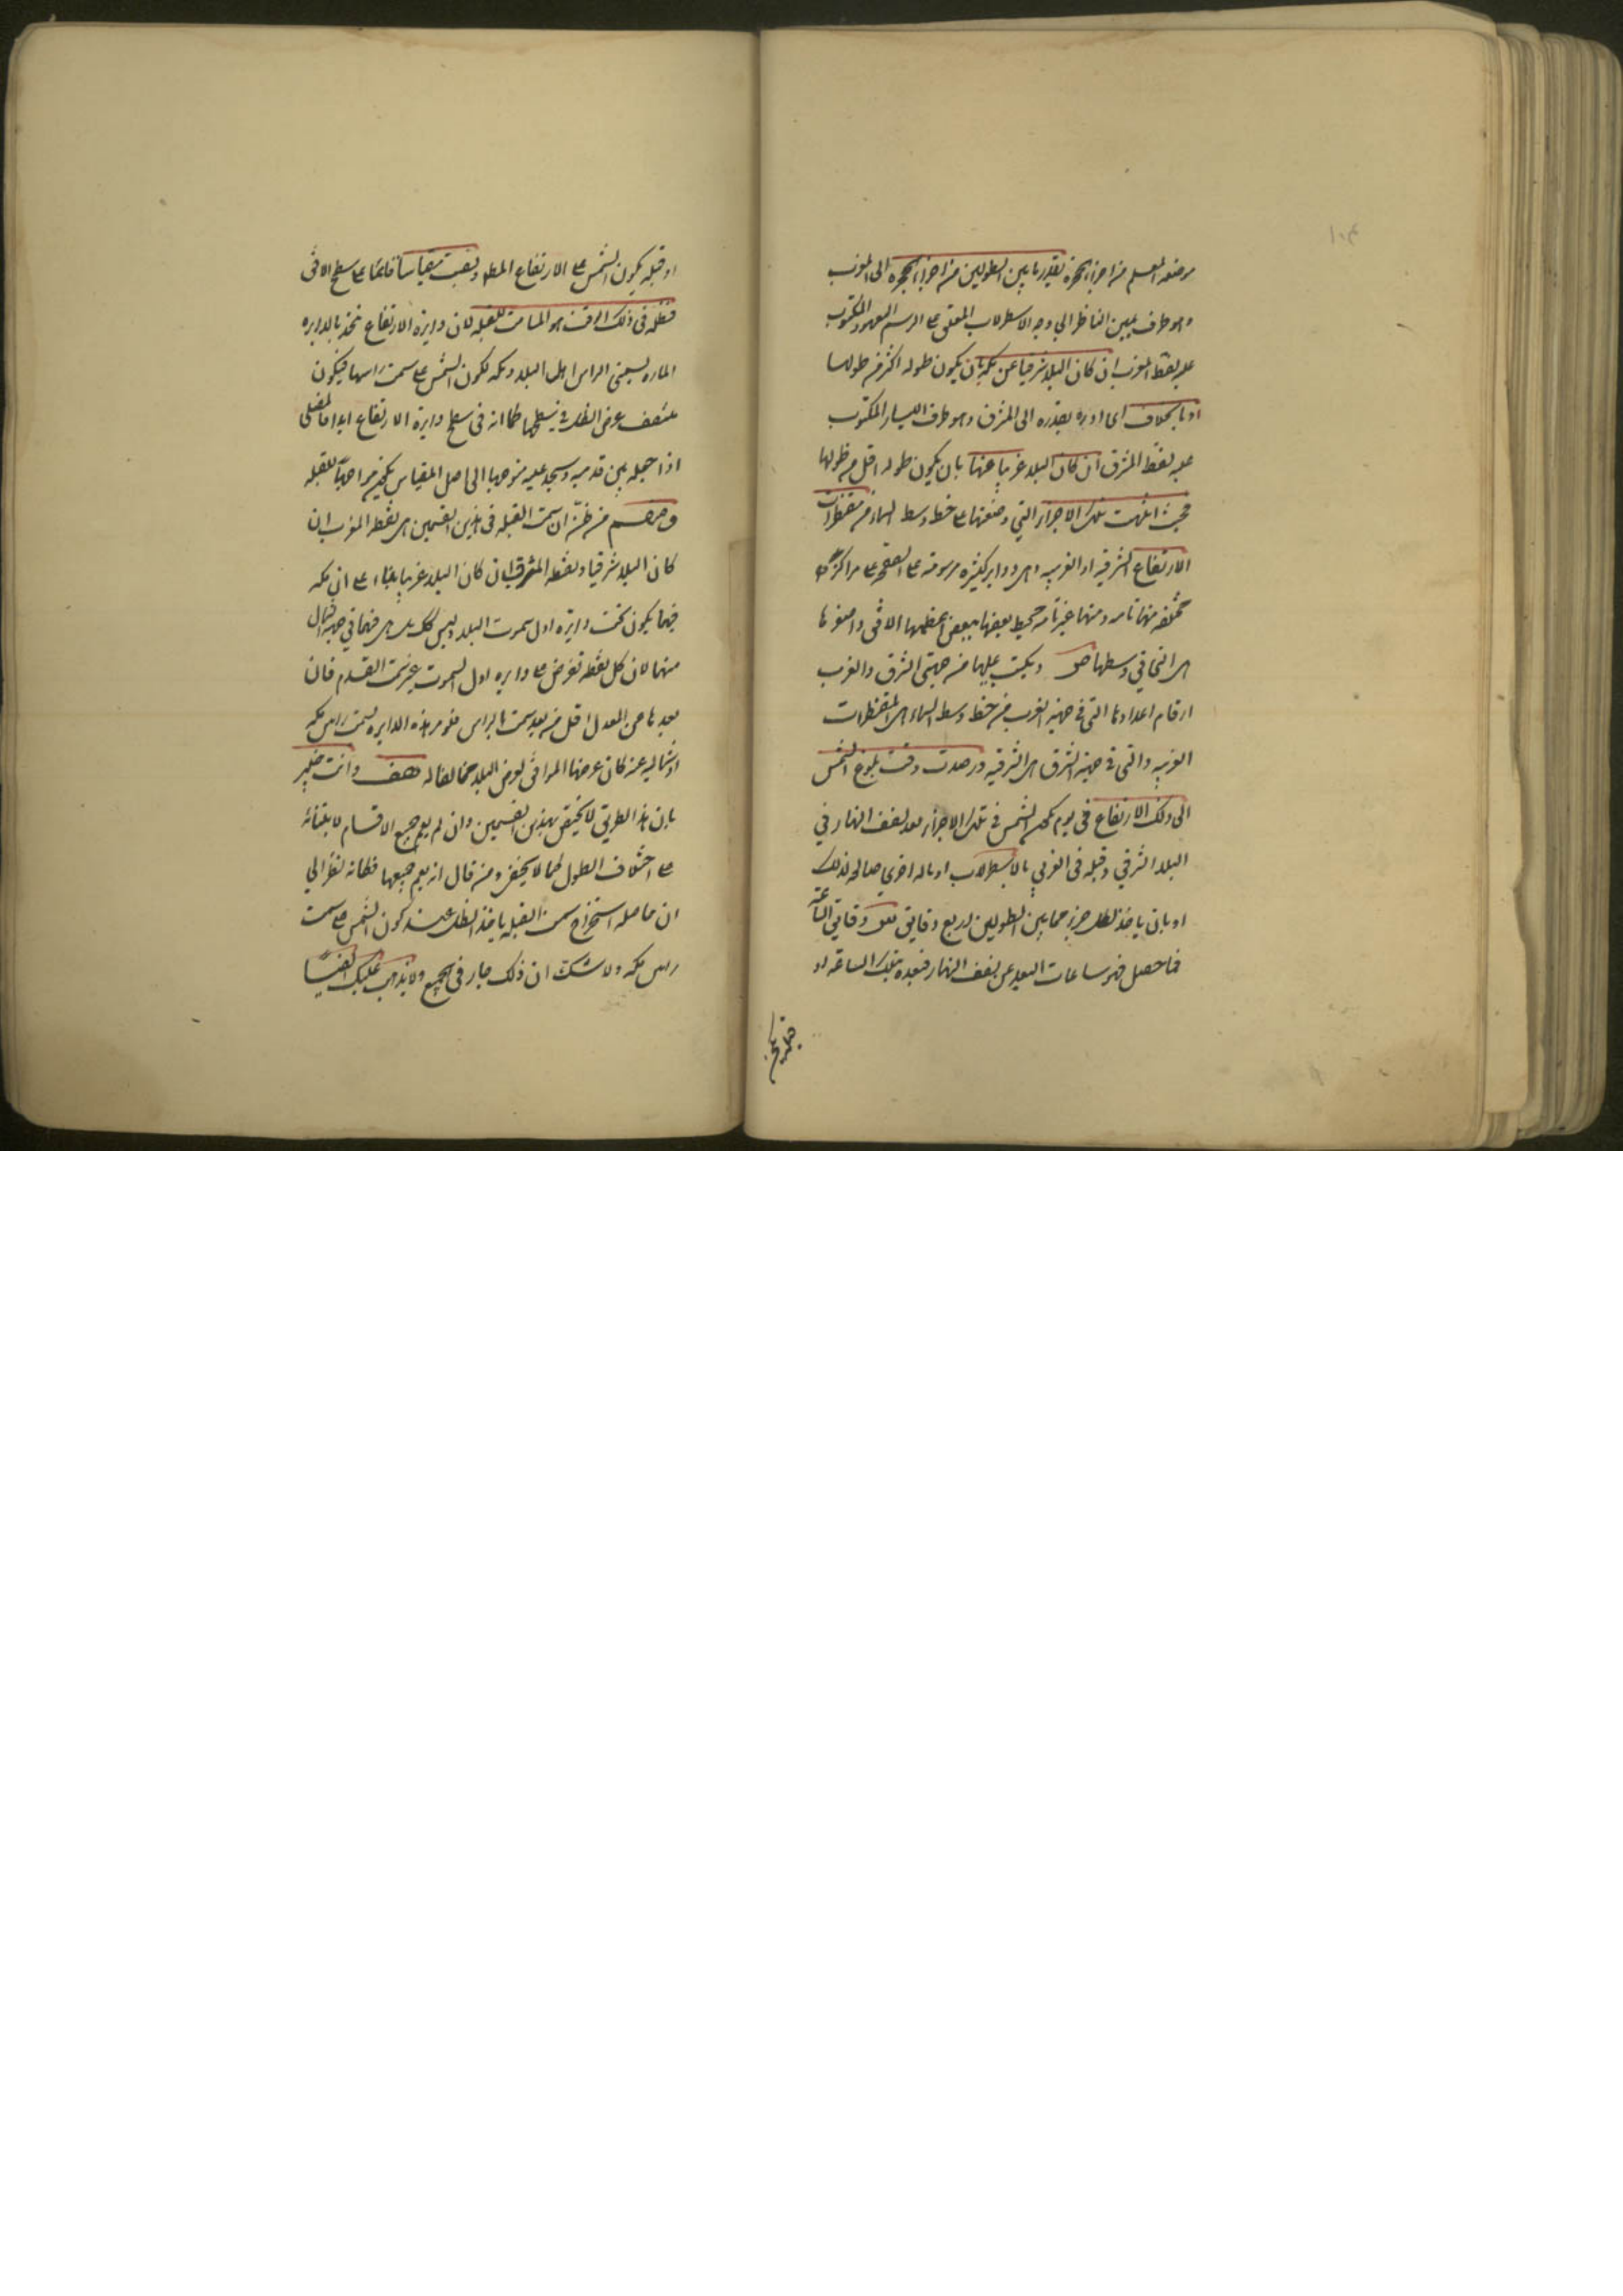 موضعه المعلم من اجزاء الحجرة بقدر ما بين الطولين من اجزاء الحجرة الى المغرب
وهو طرف يمين الناظر الى وجه الاسطرلاب المعلق على الرسم المعهود المكتوب
عليه نقطة المغرب ان كان البلد شرقيا عن مكه بان يكون طوله اكثر من طولها
او بالخلاف اى ادره بقدره الى المشرق وهو طرف اليسار المكتوب
عليه نقطة المشرق ان كان البلد غربيا عنها بان يكون طوله اقل من طولها
فحيث انتهت تلك الاجزاء التي وضعتها على خط وسط السماء من مقنطرات
الارتفاع الشرقية او الغربيه وهى دواير كثيره مرسومة على الصفيحه على مراكز
مختلفه منها تامه ومنها غير تامه محيط بعضها ببعض اعظمها الافق واصغرها
هى التى في وسطها ص ويكتب عليها من جهتى الشرق والغرب
ارقام اعدادها التى في جهة الغرب من خط وسط السماء هى المقنطرات
الغربيه والتى في جهة الشرق هى الشرقيه ورصدت وقت بلوغ الشمس
الى ذلك الارتفاع في يوم تكون الشمس في تلك الاجزاء بعد نصف النهار في
البلد الشرقي وقبله في الغربي بالاسطرلاب او باله اخرى صالحه لذلك
او بان ياخذ لكل جزء مما بين الطولين اربع دقايق من دقايق الساعة
فما حصل فهو ساعات البعد عن نصف النهار فبعده بتلك الساعة او
او قبله يكون الشمس على الارتفاع المط ونصبت مقياسا قائما على سطح الافق
فظله في ذلك الوقت هو المسامت للقبله لان دايرة الارتفاع تتحد بالدايره
الماره بسمتى الراس اهل البلد ومكه لكون الشمس على سمت راسها فيكون
منتصف عرض الظل في سطحها كما انه في سطح دايرة الارتفاع ابدا فالمصلى
اذا جعله بين قدميه وسجد عليه متوجها الى اصل المقياس يكون مواجها للقبله
من ظن ان سمت القبله في هذين القسمين هى نقطة المغرب ان
كان البلد شرقيا ونقطة المشرق ان كان البلد غربيا بناء على ان مكه
فيهما يكون تحت دايرة اول سموت البلد وليس كك بل هى فيهما في جهة الشمال
منهما لان كل نقطه تفرض على دايره اول السموت غير سمت القدم فان
بعدها عن المعدل اقل من بعد سمت الراس فلو مر هذه الدايره بسمت راس مكه
عرضها الموافق لعرض البلد مخالفا له هف وانت خبير
بان هذا الطريق لا يختص بهذين القسمين وان لم يعم جميع الاقسام لابتنائه
على اختلاف الطول كما لا يخفى ومن قال انه يعم جميعها فكانه نظر الى
ان حاصله استخراج سمت القبله باخذ الظل عند كون الشمس على سمت
راس مكه ولا شك ان ذلك جار في الجميع ولا يذهب عليك ايضا